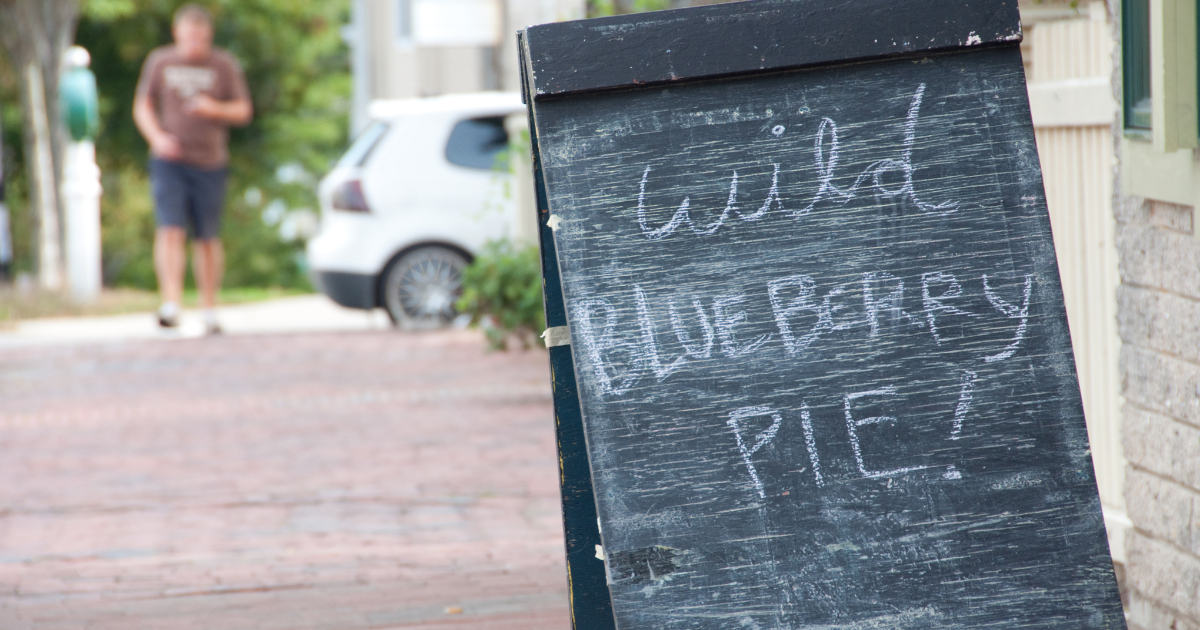 wild
BLUEBERRY
PIE!